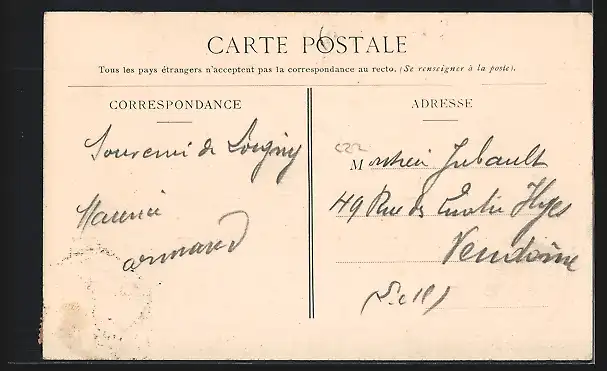 CARTE POSTALE
Tous les pays étrangers n'acceptent pas la correspondance au recto. (Se renseigner à la poste).
CORRESPONDANCE
ADRESSE
Souvenir de Loigny
Maurice
Armand
Monsieur Jubault
49 Rue des Quatre Huyes
Vendôme